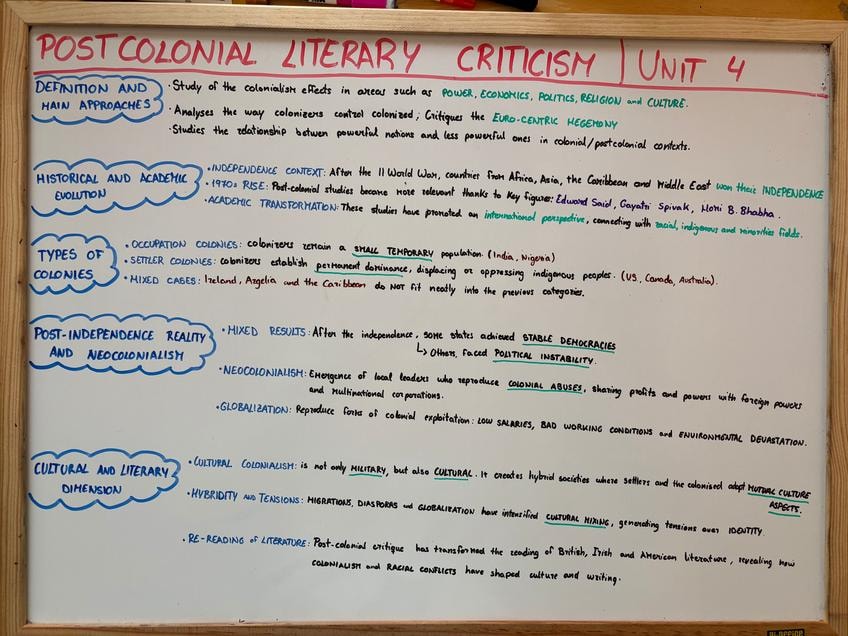 POSTCOLONIAL LITERARY CRITICISM | UNIT 4
DEFINITION AND
MAIN APPROACHES
· Study of the colonialism effects in areas such as POWER, ECONOMICS, POLITICS, RELIGION and CULTURE.
· Analyses the way colonizers control colonized; Critiques the EURO-CENTRIC HEGEMONY
· Studies the relationship betwen powerful nations and less powerful ones in colonial/postcolonial contexts.
HISTORICAL AND ACADEMIC
EVOLUTION
· INDEPENDENCE CONTEXT: After the II World War, countries from Africa, Asia, the Caribbean and Middle East won their INDEPENDENCE
· 1970s RISE: Post-colonial studies became more relevant thanks to key figures: Edward Said, Gayatri Spivak, Homi B. Bhabha.
· ACADEMIC TRANSFORMATION: These studies have promoted an international perspective, connecting with racial, indigenous and minorities fields.
TYPES OF
COLONIES
· OCCUPATION COLONIES: colonizers remain a SMALL TEMPORARY population. (India, Nigeria)
· SETTLER COLONIES: colonizers establish permanent dominance, displacing or oppressing indigenous peoples. (US, Canada, Australia).
· MIXED CASES: Ireland, Argelia and the Caribbean do NOT fit neatly into the previous categories.
POST-INDEPENDENCE REALITY
AND NEOCOLONIALISM
· MIXED RESULTS: After the independence, some states achieved STABLE DEMOCRACIES
↳ Others, faced POLITICAL INSTABILITY.
· NEOCOLONIALISM: Emergence of local leaders who reproduce COLONIAL ABUSES, sharing profits and powers with foreign powers
and multinational corporations.
· GLOBALIZATION: Reproduce forms of colonial exploitation: LOW SALARIES, BAD WORKING CONDITIONS and ENVIRONMENTAL DEVASTATION.
CULTURAL AND LITERARY
DIMENSION
· CULTURAL COLONIALISM: is not only MILITARY, but also CULTURAL. It creates hybrid societies where settlers and the colonised adopt MUTUAL CULTURE
ASPECTS.
· HYBRIDITY AND TENSIONS: MIGRATIONS, DIASPORAS and GLOBALIZATION have intensified CULTURAL MIXING, generating tensions over IDENTITY.
· RE-READING of LITERATURE: Post-colonial critique has transformed the reading of British, Irish and American literature, revealing how
COLONIALISM and RACIAL CONFLICTS have shaped culture and writing.